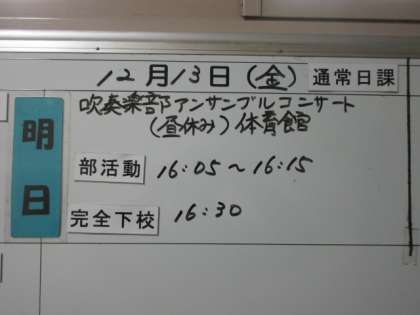 12月13日(金) 通常日課
明日
吹奏楽部アンサンブルコンサート
(昼休み)体育館
部活動 16:05～16:15
完全下校 16:30